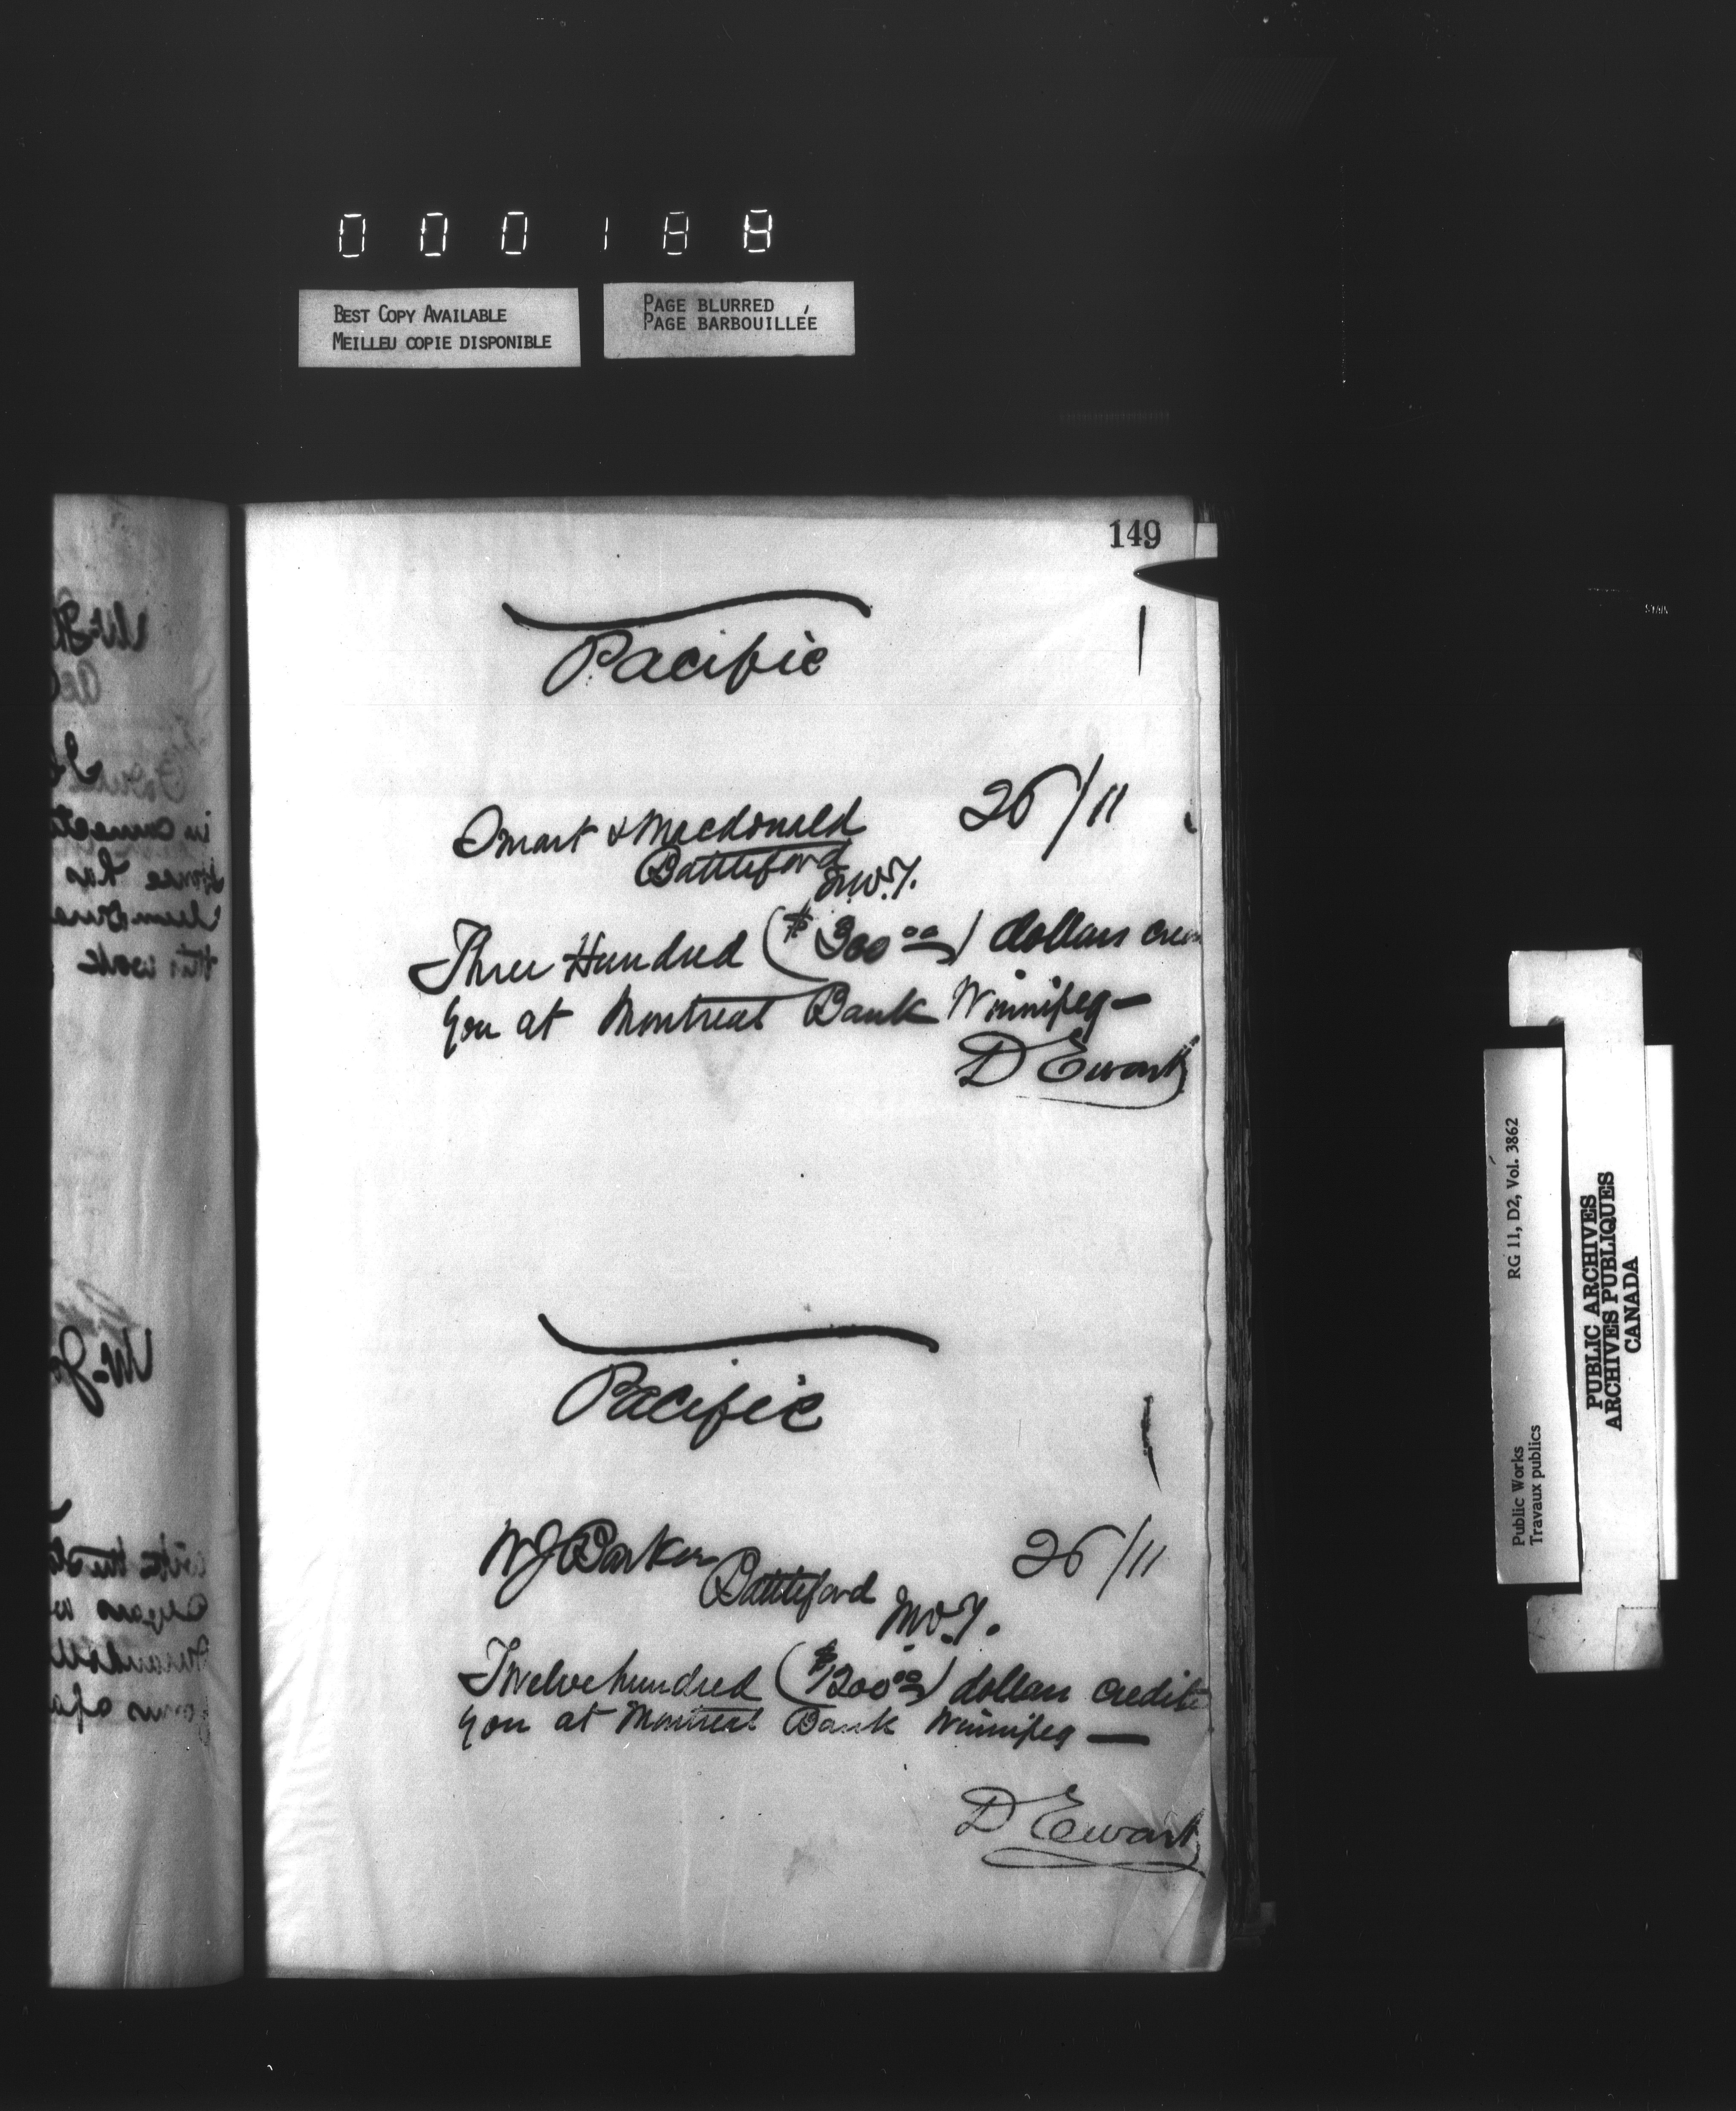 000188
BEST COPY AVAILABLE
MEILLEU COPIE DISPONIBLE
PAGE BLURRED
PAGE BARBOUILLÉE
149
Pacific
26/11
Smart & Macdonald
Battleford
N.W.T.
Three Hundred ($300.00) dollars
you at Montreal Bank Winnipeg —
D Ewart
Pacific
26/11
W J Barker
Battleford
N.W.T.
Twelve hundred ($1200.00) dollars credite
you at Montreal Bank Winnipeg —
D Ewart
Public Works
Travaux publics
RG 11, D2, Vol. 3862
PUBLIC ARCHIVES
ARCHIVES PUBLIQUES
CANADA